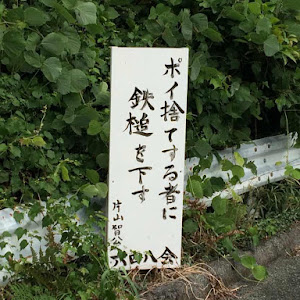 ポイ捨てする者に
鉄槌を下す
片山智公
八会